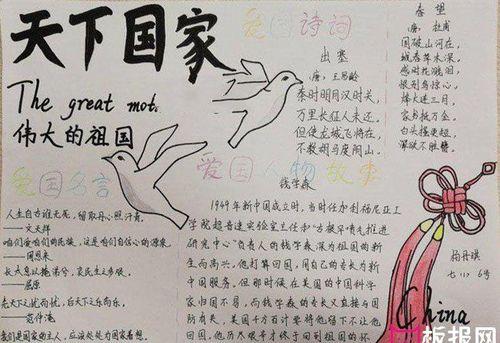 天下国家
The great mot.
伟大的祖国
爱国诗词
出塞
唐：王昌龄
秦时明月汉时关，
万里长征人未还。
但使龙城飞将在，
不教胡马度阴山。
春望
唐：杜甫
国破山河在，
城春草木深。
感时花溅泪，
恨别鸟惊心。
烽火连三月，
家书抵万金。
白头搔更短，
浑欲不胜簪。
爱国名言
人生自古谁无死，留取丹心照汗青。
——文天祥
咱们爱咱们的民族，这是咱们自信心的源泉。
——周恩来
长太息以掩涕兮，哀民生之多艰。
——屈原
先天下之忧而忧，后天下之乐而乐。
——范仲淹
我们是国家的主人，应该处处为国家着想。
爱国人物故事
钱学森
1949年新中国成立时，当时任加利福尼亚工
学院超音速实验室主任和"古根罕喷气推进
研究中心"负责人的钱学森深为祖国的新
生而高兴。他打算回国，用自己的专长为新
中国服务。但那时候在美国的中国科学
家归国不易，而钱学森的专长又直接与国
防有关，美国千方百计要将他留下不让他
回国，他历尽艰辛才终于回到祖国的怀
七
China
板报网